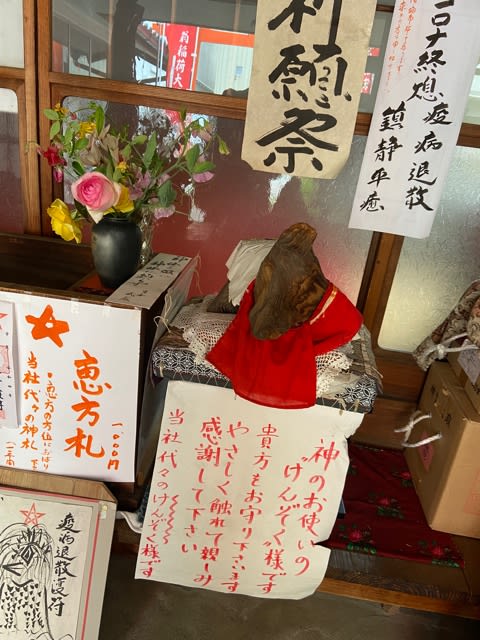 翁稲荷大
祈願祭
コロナ終熄疫病退散
鎮静平癒
恵方札
一、〇〇〇円
・恵方の方位に
当社代々の神札
神のお使いの
"げんぞく様です
貴方もお守り下さいます
やさしく触れて親しみ
感謝して下さい
当社代々のけんぞく様です
疫病退散受付